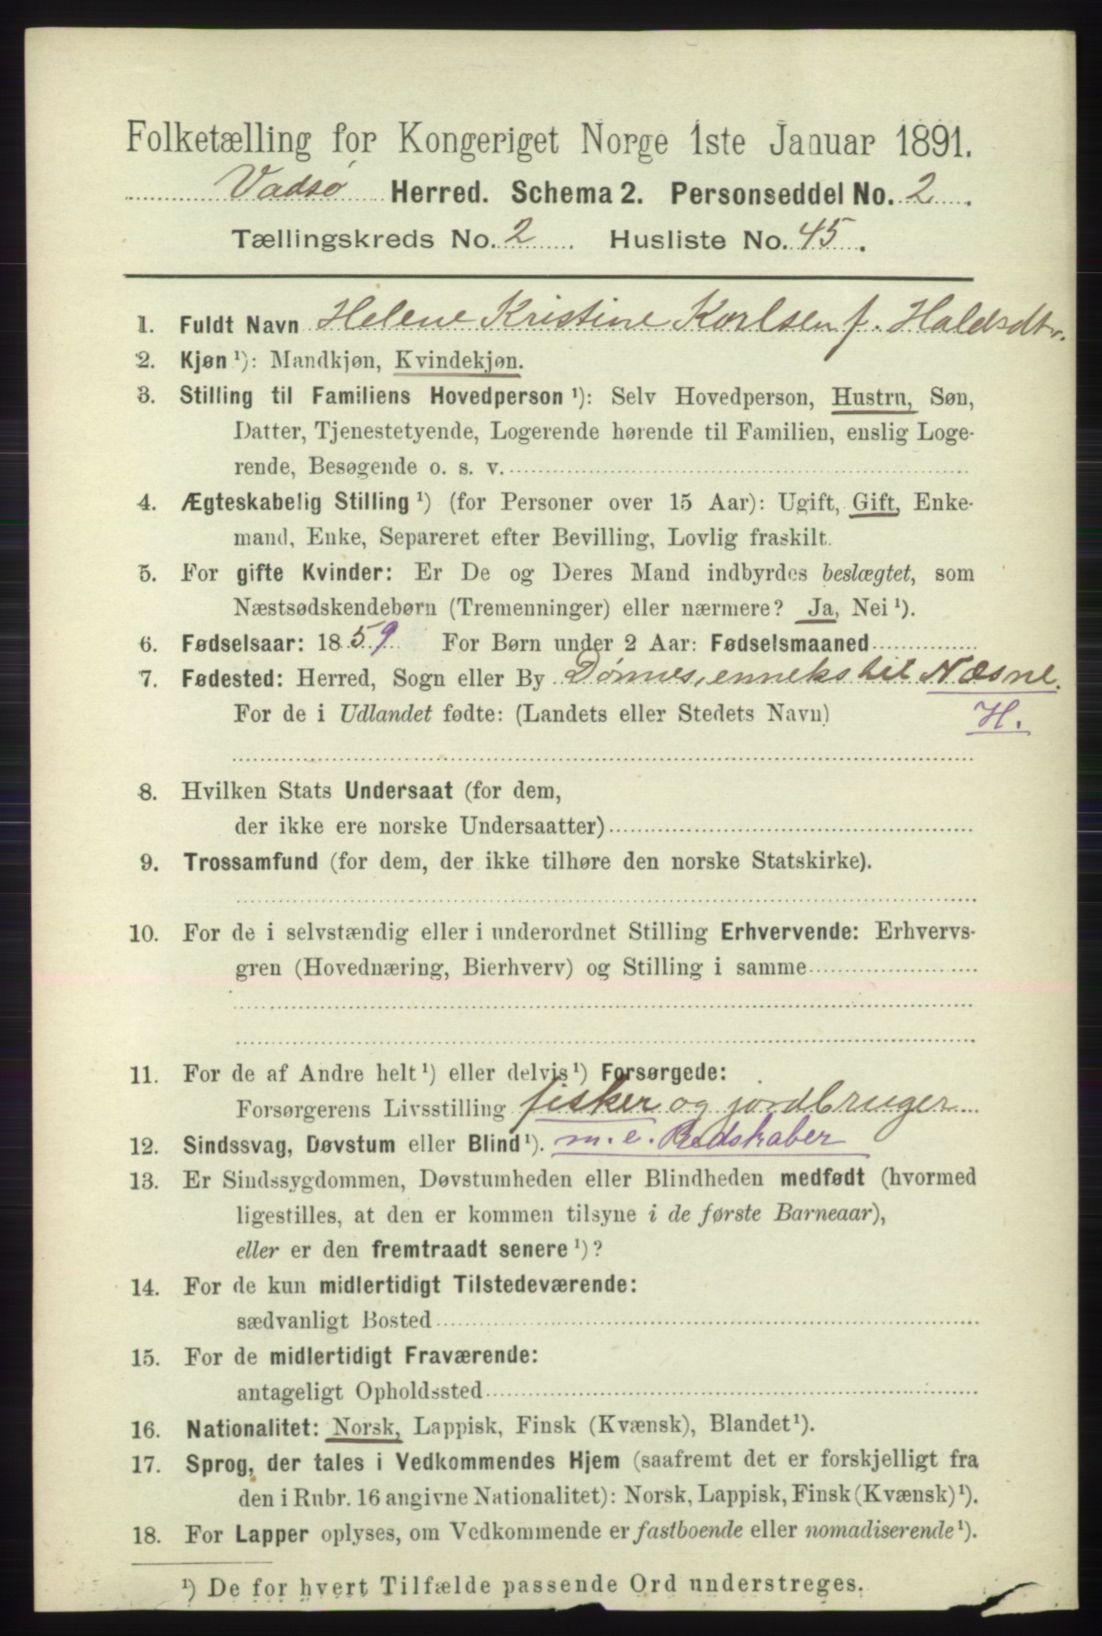 Folketælling for Kongeriget Norge 1ste Januar 1891.
Vadsø Herred. Schema 2. Personseddel No. 2.
Tællingskreds No. 2 Husliste No. 45.
1. Fuldt Navn Helene Kristine Karlsen f. Haldsdtr.
2. Kjøn ¹): Mandkjøn, Kvindekjøn.
3. Stilling til Familiens Hovedperson ¹): Selv Hovedperson, Hustru, Søn,
Datter, Tjenestetyende, Logerende hørende til Familien, enslig Loge-
rende, Besøgende o. s. v.
4. Ægteskabelig Stilling ¹) (for Personer over 15 Aar): Ugift, Gift, Enke-
mand, Enke, Separeret efter Bevilling, Lovlig fraskilt.
5. For gifte Kvinder: Er De og Deres Mand indbyrdes beslægtet, som
Næstsødskendebørn (Tremenninger) eller nærmere? Ja, Nei ¹).
6. Fødselsaar: 1859 For Børn under 2 Aar: Fødselsmaaned
7. Fødested: Herred, Sogn eller By Dønnes, enneks til Næsne.
For de i Udlandet fødte: (Landets eller Stedets Navn) H.
8. Hvilken Stats Undersaat (for dem,
der ikke ere norske Undersaatter)
9. Trossamfund (for dem, der ikke tilhøre den norske Statskirke).
10. For de i selvstændig eller i underordnet Stilling Erhvervende: Erhvervs-
gren (Hovednæring, Bierhverv) og Stilling i samme
11. For de af Andre helt ¹) eller delvis ¹) Forsørgede:
Forsørgerens Livsstilling fisker og jordbruger
12. Sindssvag, Døvstum eller Blind ¹). m. e. Redskaber
13. Er Sindssygdommen, Døvstumheden eller Blindheden medfødt (hvormed
ligestilles, at den er kommen tilsyne i de første Barneaar),
eller er den fremtraadt senere ¹)?
14. For de kun midlertidigt Tilstedeværende:
sædvanligt Bosted
15. For de midlertidigt Fraværende:
antageligt Opholdssted
16. Nationalitet: Norsk, Lappisk, Finsk (Kvænsk), Blandet ¹).
17. Sprog, der tales i Vedkommendes Hjem (saafremt det er forskjelligt fra
den i Rubr. 16 angivne Nationalitet): Norsk, Lappisk, Finsk (Kvænsk) ¹).
18. For Lapper oplyses, om Vedkommende er fastboende eller nomadiserende ¹).
¹) De for hvert Tilfælde passende Ord understreges.